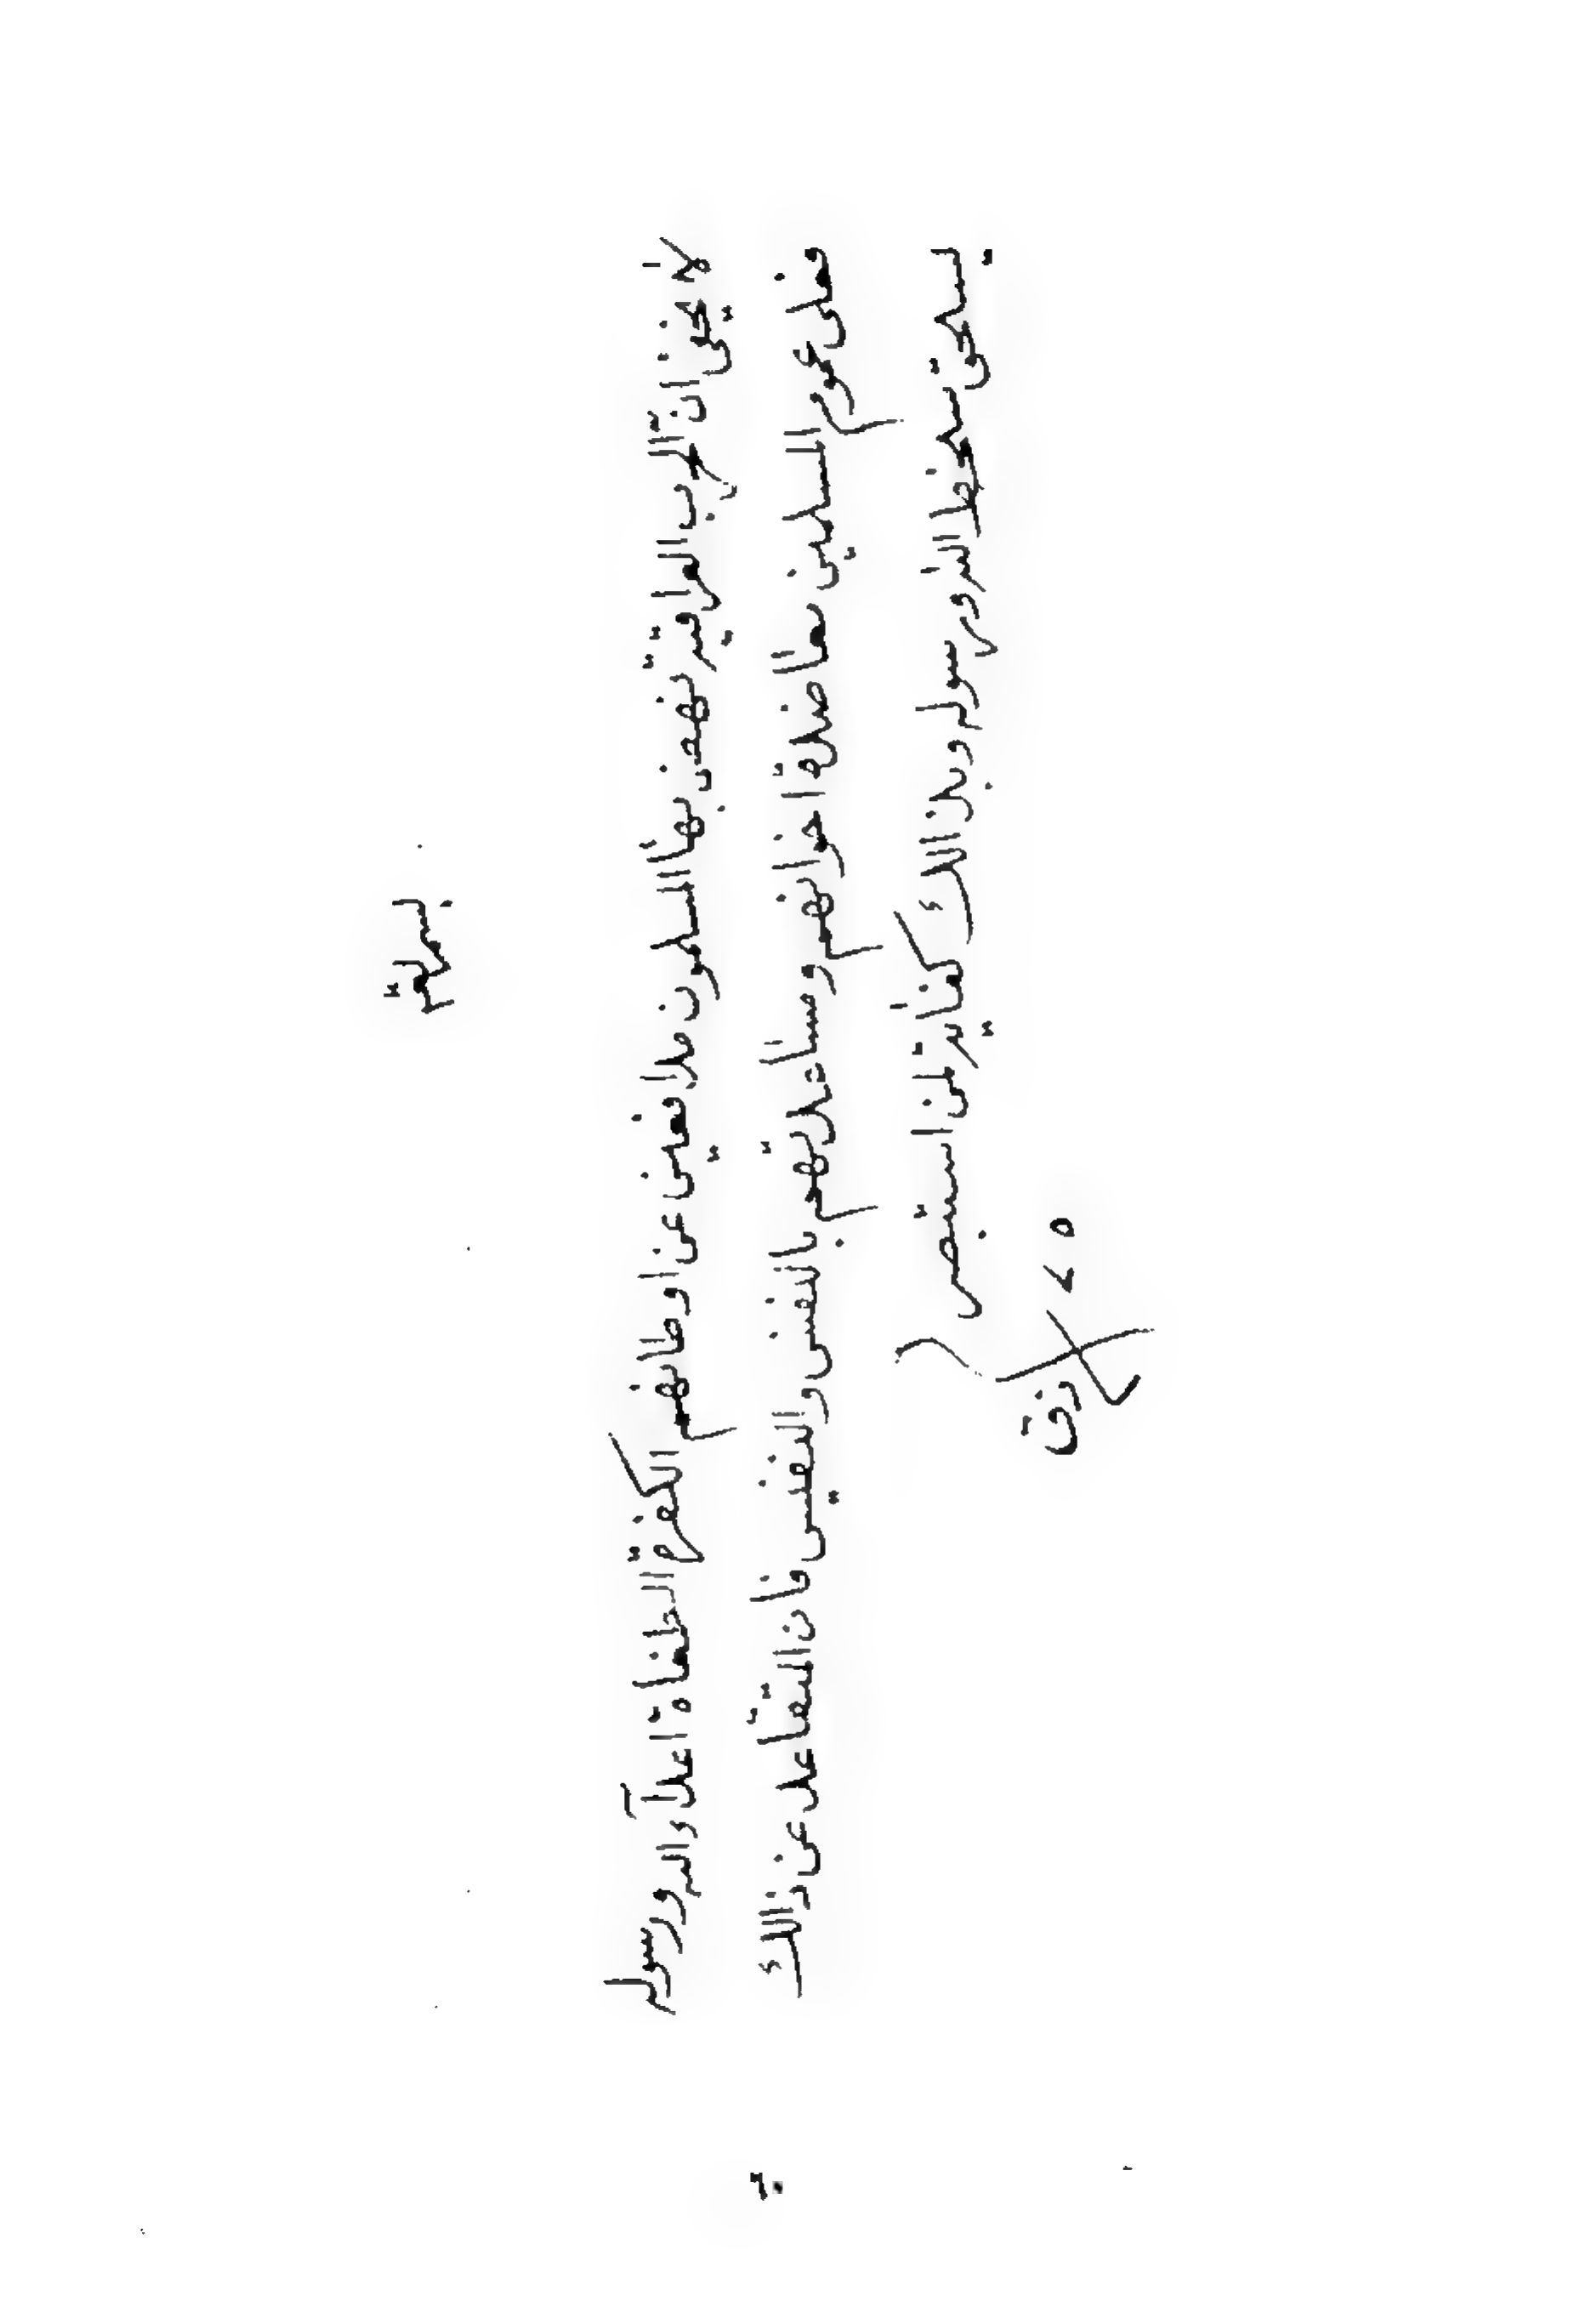 بسملة
لا يخفى ان الحرب العراقية نهض بها المسلمون مدافعين عن اوطانهم الكفرة الطغاة اعداء الله ورسوله
فعلى عموم المسلمين معاضدة اخوانهم ومساعدتهم بالنفس والنفيس فان التقاعد عن ذالك
يستحق سخط الله ورسوله وبذالك كفاية لمن استبصر